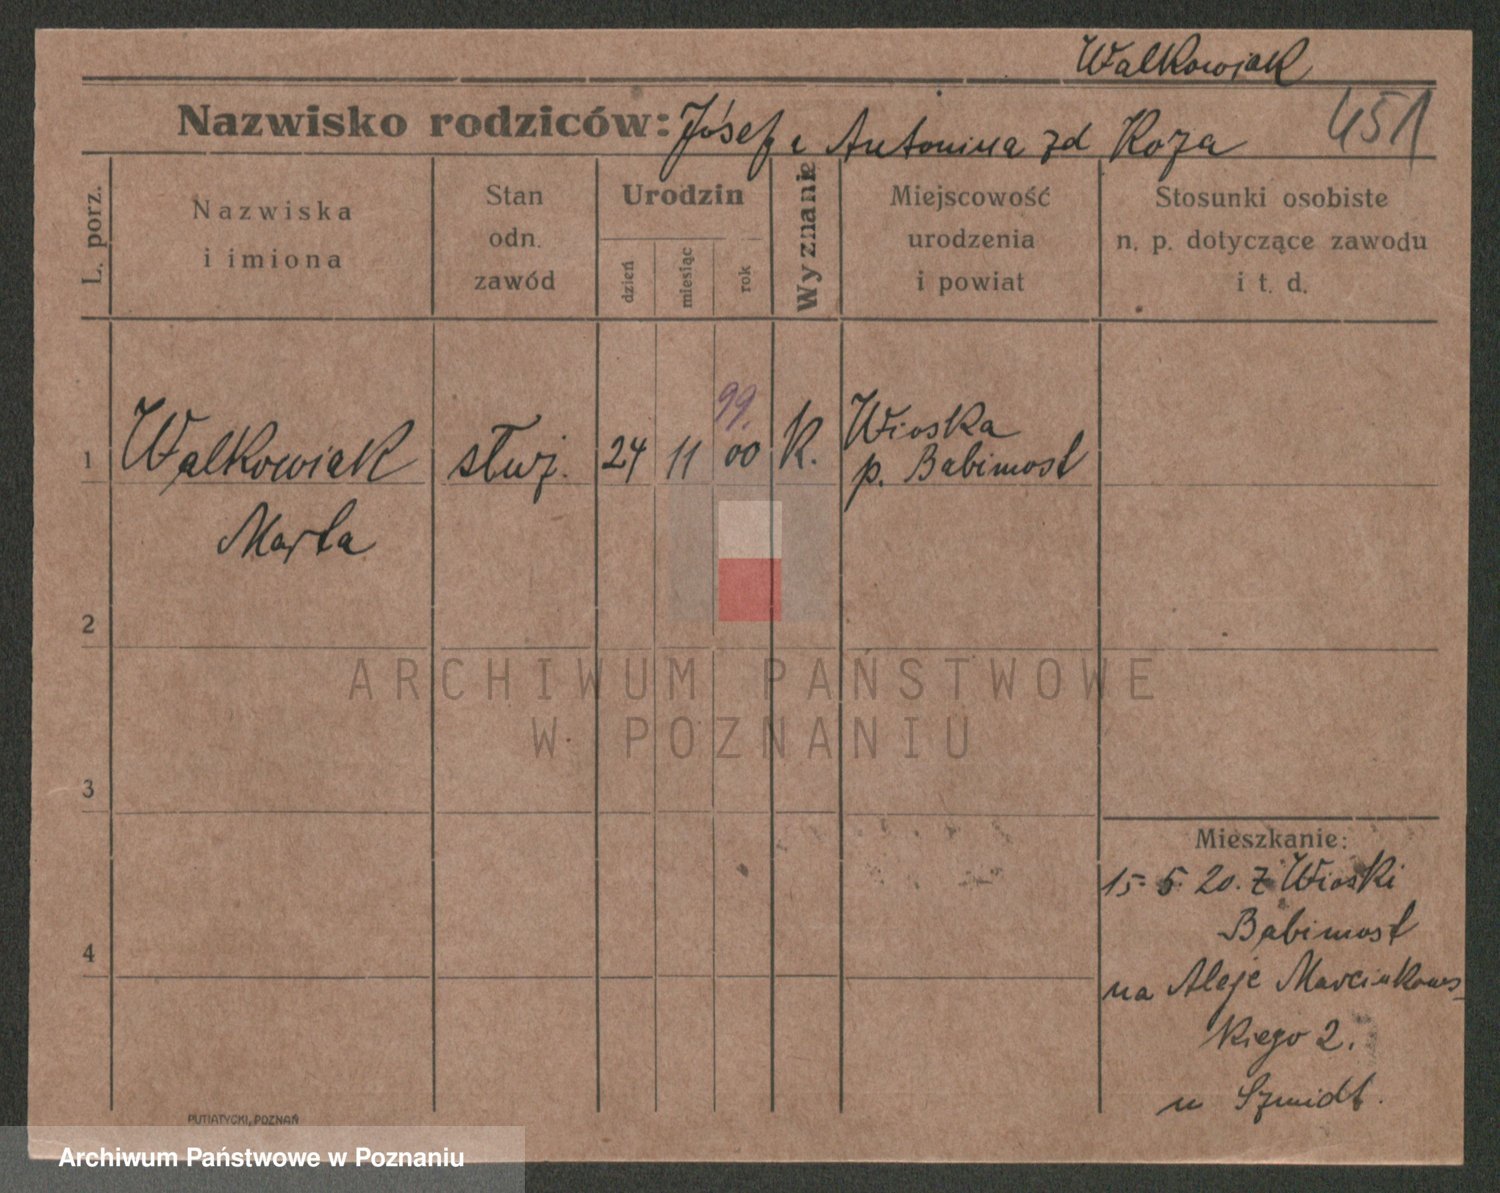 Walkowiak
Nazwisko rodziców: Józef i Antonina zd Koza
451
L. porz.
Nazwiska
i imiona
Stan
odn.
zawód
Urodzin
dzień
miesiąc
rok
Wyznanie
Miejscowość
urodzenia
i powiat
Stosunki osobiste
n. p. dotyczące zawodu
i t. d.
99.
1 Walkowiak służ. 24 11 00 K. Wioska
p. Babimost
Marta
2
3
4
ARCHIWUM PAŃSTWOWE
W POZNANIU
Mieszkanie:
15 5 20. z Wioski
Babimost
na Aleje Marcinkows-
kiego 2.
u Szmidt.
PUTIATYCKI, POZNAŃ
Archiwum Państwowe w Poznaniu